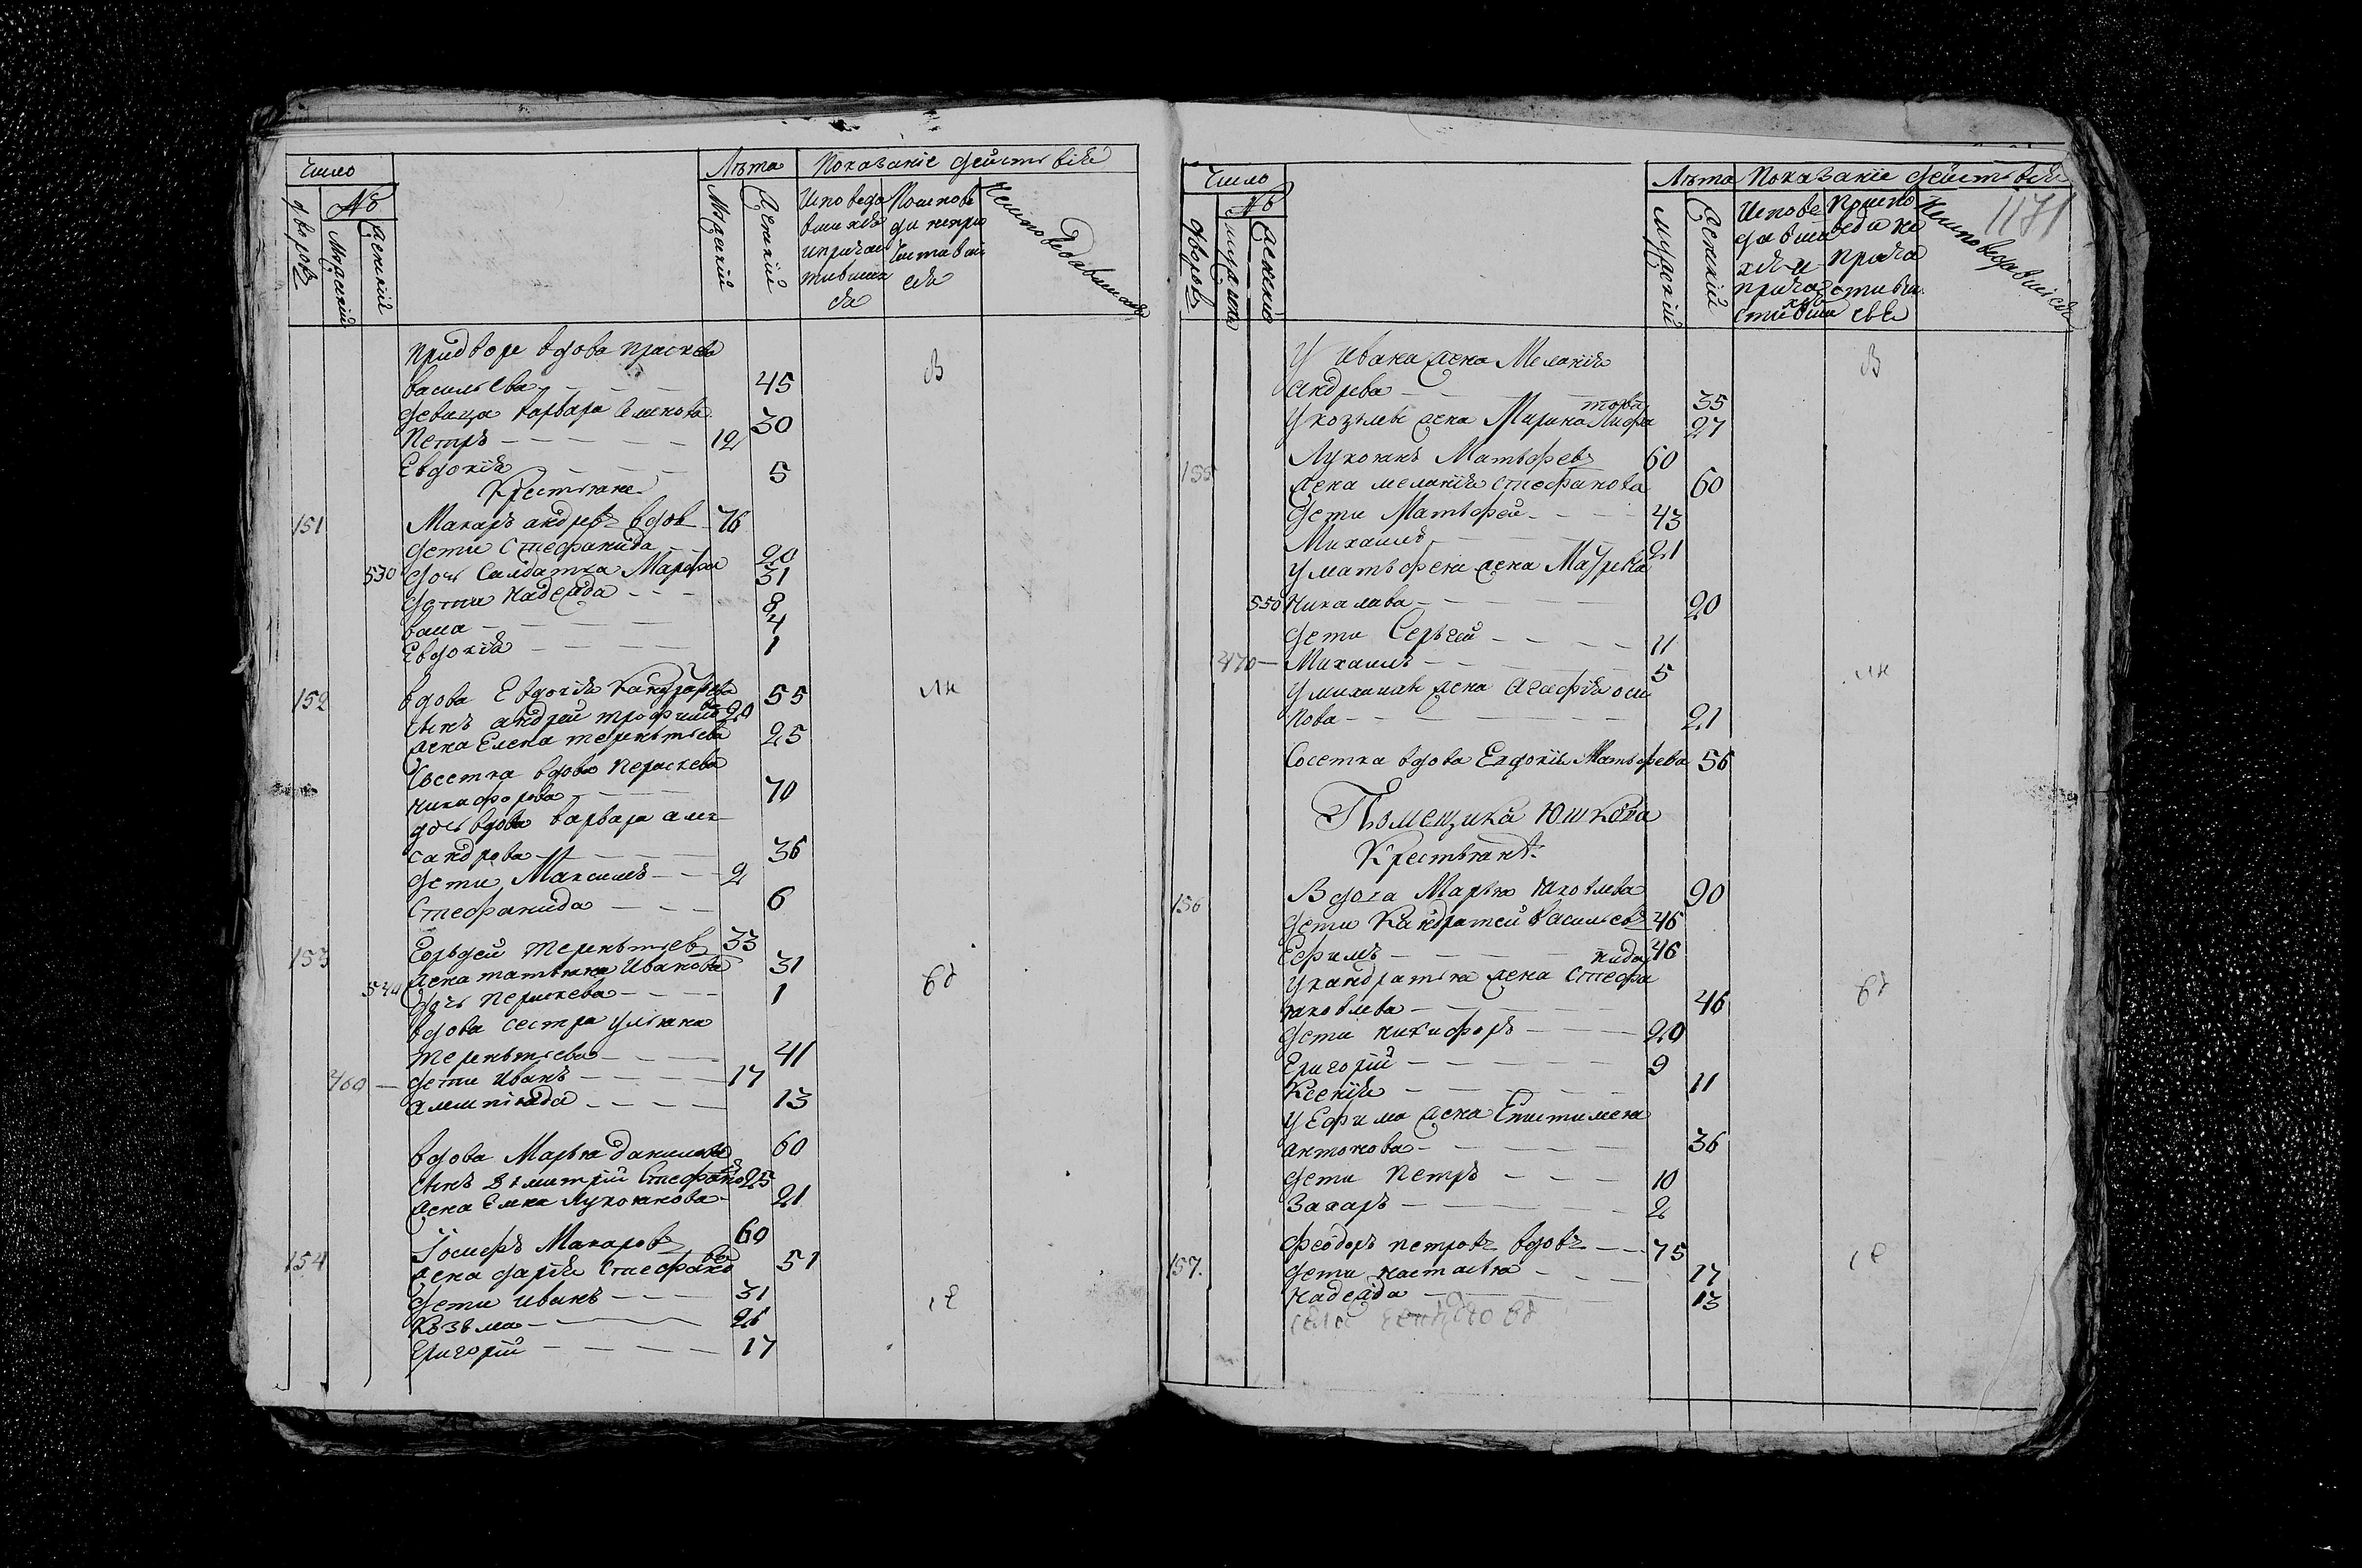 Число
Лѣта
Показаніе дѣйствій
дворовъ
№
Мужескій
женскій
Мужескій
Женскій
Исповеда
вшихся
ипричас
тивших
ся
Поиспове
ди непри
частивш
ся
Неисповедавшихся
придворе вдова праскева
васильева 45
девица варвара 30
Петръ 12
Евдокія 5
Крестьяне
151 Макаръ андревъ вдов 76
дети Стефанида 20
530 дочь Салдатка Марфа 31
дети надежда 8
4
Евдокія 1
152 вдова Евдокія 55
сынъ андрей трофимовъ 20
жена Елена терентьева 25
Сосетка вдова Пераскева
никафорова 70
дочь вдова варвара алек
сандрова 36
дети Максимъ 2
Стефанида 6
153 терентьев 33
жена татьяна Иванова 31
540 дочь перискева 1
вдова сестра ульяна
терентьева 41
460 дети Иванъ 17
алимпіяда 13
вдова Марья данилова 60
сынъ димитрій Стефановъ 25
жена Елена Лукоянова 21
154 Іосифъ Макаровъ 60
жена дарія Стефанова 51
дети иванъ 31
Козьма 26
Григорій 17
В
ли
Число
Лѣта
Показаніе дѣйствій
1171
дворовъ
№
женскій
мужскій
Женскій
Испове
давши
хся и
прича
стивши
хся
Поиспо
веди не
прича
стивши
ся
Неисповедавшихся
У ивана жена Меланія
андрева 35
У козьмы жена Марина 27
155 Лукоянъ Матвфевъ 60
жена меланія стефанова 60
дети Матвфей 43
Михаилъ 21
У матвфея жена Матрена
550 Никалава 20
дети Сергей 11
470 Михаилъ 5
У михаила жена Агафія оси
пова 21
Сосетка вдова Евдокія Матвфева 56
Помещика Юшкова
Крестьянѣ
156 Вдова Марья яковлева 90
дети Кандратей Васильевъ 46
Ефимъ 46
У кандратья жена Стефанида
яковлева 46
дети никифоръ 20
Григорій 9
Ксенія 11
У Ефима жена Епистимея
антонова 36
дети Петръ 10
Захаръ 2
157. Феодоръ петровъ вдовъ 75
дети настасья 17
надежда 13
В
ли